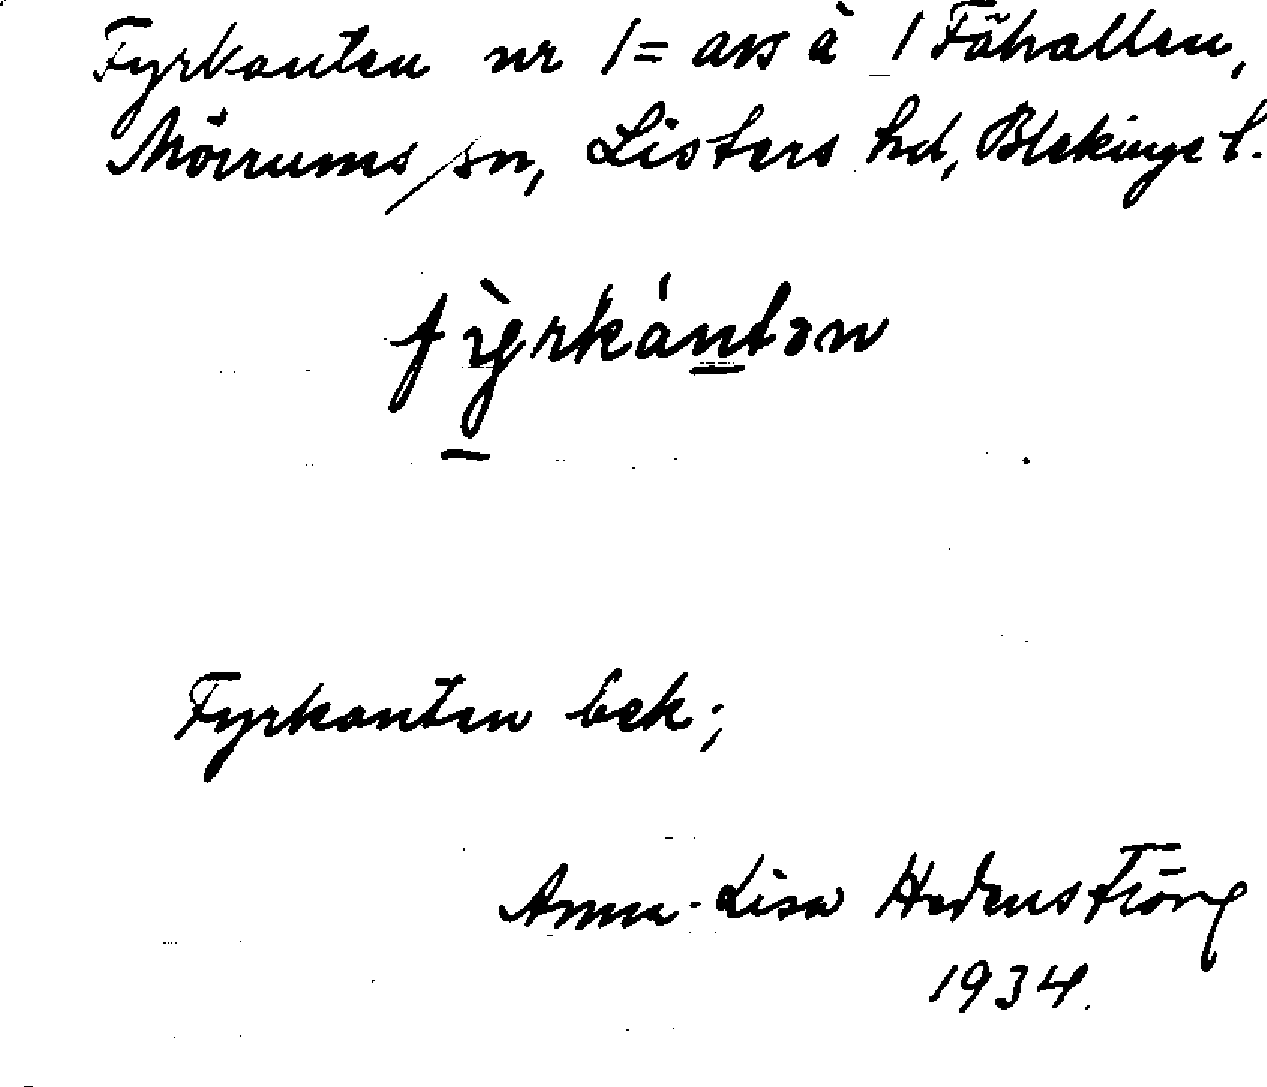 Fyrkanten nr 1 = avs å 1 Fähallen,
Mörrums sn, Listers hd, Blekinge l.
fỳrkántən
Fyrkanten bek;
Anna-Lisa Hedenstierna
1934.